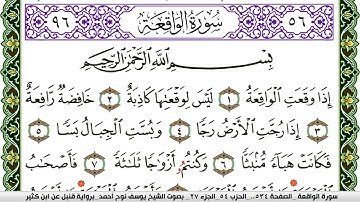 ٥٦ سُورَةُ الوَاقِعَةِ ٩٦
بِسْمِ ٱللَّهِ ٱلرَّحْمَٰنِ ٱلرَّحِيمِ
إِذَا وَقَعَتِ ٱلْوَاقِعَةُ ١ لَيْسَ لِوَقْعَتِهَا كَاذِبَةٌ ٢ خَافِضَةٌ رَافِعَةٌ
٣ إِذَا رُجَّتِ ٱلْأَرْضُ رَجًّا ٤ وَبُسَّتِ ٱلْجِبَالُ بَسًّا ٥
فَكَانَتْ هَبَآءً مُنۢبَثًّا ٦ وَكُنتُمُۥٓ أَزْوَٰجًا ثَلَٰثَةً ٧ فَأَصْحَٰبُ
سورة الواقعة _ الصفحة ٥٣٤_ الحزب ٥٤_ الجزء ٢٧ _ بصوت الشيخ يوسف نوح أحمد _ برواية قنبل عن ابن كثير